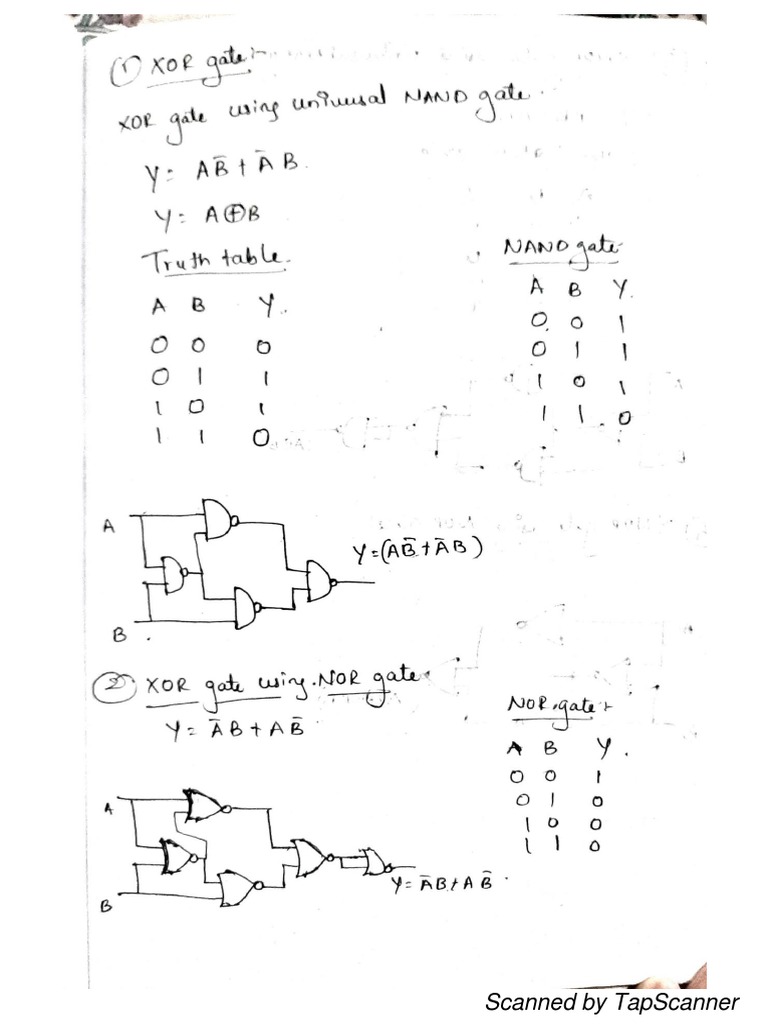 ① XOR gate:-
XOR gate using universal NAND gate.
Y = AB̅ + A̅ B.
Y = A⊕B
Truth table.
A B Y.
0 0 0
0 1 1
1 0 1
1 1 0
NAND gate
A B Y.
0 0 1
0 1 1
1 0 1
1 1 0
A
B
Y = (AB̅ + A̅ B)
② XOR gate using NOR gate
Y = A̅ B + A B̅
NOR gate:-
A B Y.
0 0 1
0 1 0
1 0 0
1 1 0
A
B
Y = A̅ B + A B̅
Scanned by TapScanner